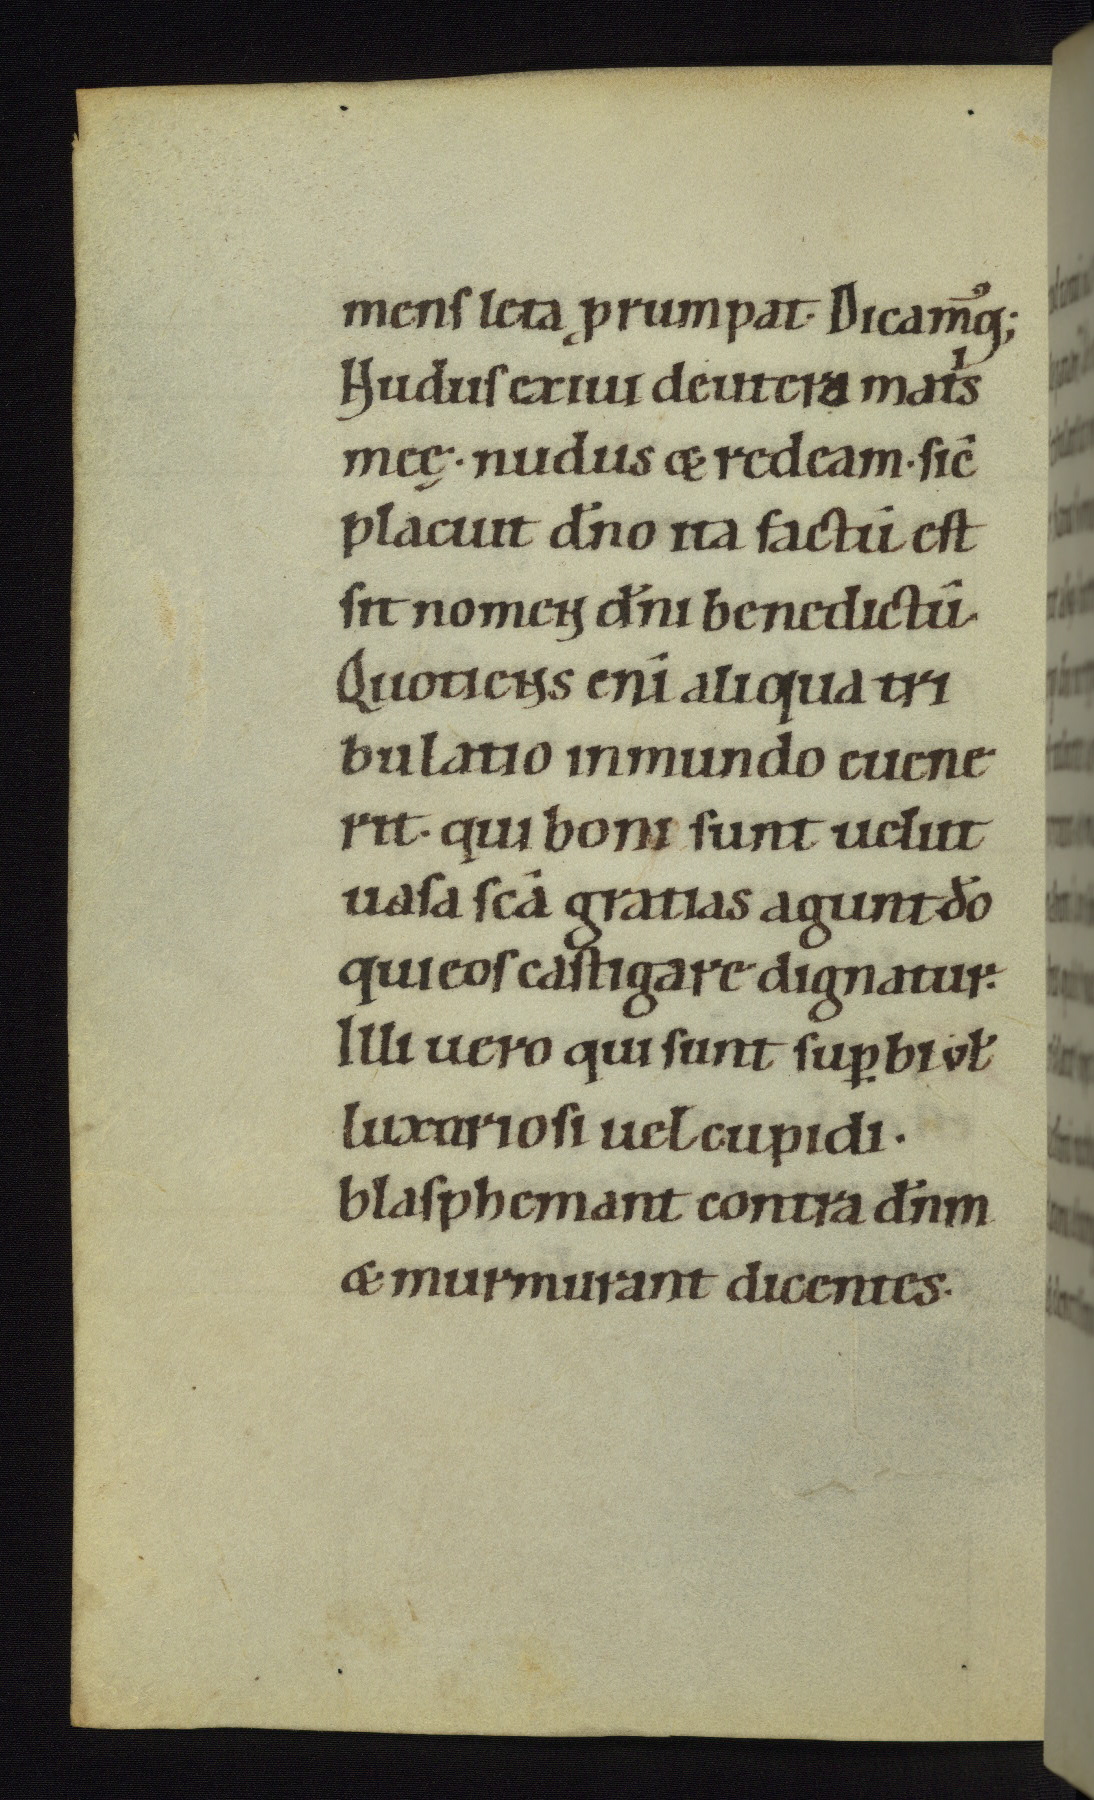 mens leta ꝓrumpat. Dicam̄ꝰq;
Nudus exiui deutero mat͛s
meę. nudus & redeam. sic̄
placuit dn̄o ita factū est
sit nomen dn̄i benedictū.
Quotiens enī aliqua tri
bulatio inmundo euene
rit. qui boni sunt uelut
uasa scā gratias agunt dō
qui eos castigare dignatur.
Illi uero qui sunt suꝑbi ul̄
luxuriosi uel cupidi.
blasphemant contra dn̄m
& murmurant dicentes.